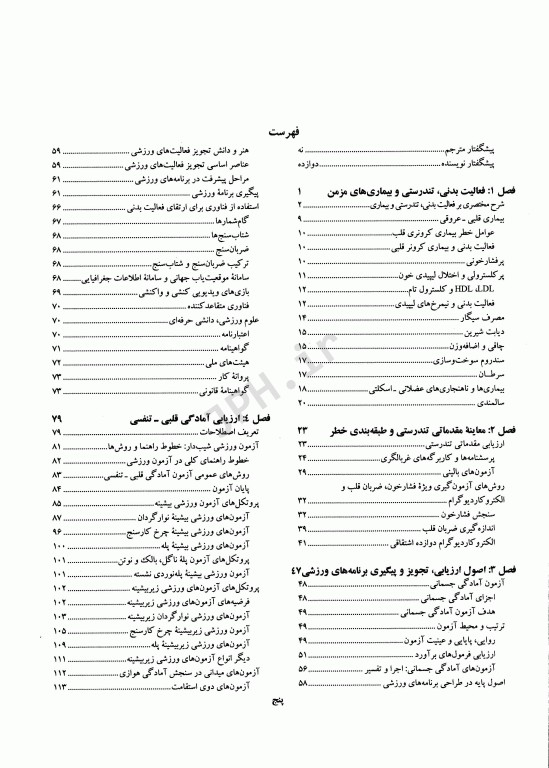 فهرست
پیشگفتار مترجم ..... نه
پیشگفتار نویسنده ..... دوازده
فصل ۱: فعالیت بدنی، تندرستی و بیماری‌های مزمن ۱
شرح مختصری بر فعالیت بدنی، تندرستی و بیماری ..... ۲
بیماری قلبی ـ عروقی ..... ۹
عوامل خطر بیماری کرونری قلب ..... ۱۰
فعالیت بدنی و بیماری کرونر قلبی ..... ۱۰
پرفشارخونی ..... ۱۰
پرکلسترولی و اختلال لیپیدی خون ..... ۱۱
HDL ،LDL و کلسترول تام ..... ۱۲
فعالیت بدنی و نیمرخ‌های لیپیدی ..... ۱۲
مصرف سیگار ..... ۱۴
دیابت شیرین ..... ۱۵
چاقی و اضافه‌وزن ..... ۱۵
سندروم سوخت‌وسازی ..... ۱۶
سرطان ..... ۱۷
بیماری‌ها و ناهنجاری‌های عضلانی ـ اسکلتی ..... ۱۸
سالمندی ..... ۲۰
فصل ۲: معاینهٔ مقدماتی تندرستی و طبقه‌بندی خطر ۲۳
ارزیابی مقدماتی تندرستی ..... ۲۳
پرسشنامه‌ها و کاربرگه‌های غربالگری ..... ۲۴
آزمون‌های بالینی ..... ۲۹
روش‌های آزمون‌گیری ویژهٔ فشارخون، ضربان قلب و
الکتروکاردیوگرام ..... ۳۲
سنجش فشارخون ..... ۳۲
اندازه‌گیری ضربان قلب ..... ۳۹
الکتروکاردیوگرام دوازده اشتقاقی ..... ۴۱
فصل ۳: اصول ارزیابی، تجویز و پیگیری برنامه‌های ورزشی ۴۷
آزمون آمادگی جسمانی ..... ۴۸
اجزای آمادگی جسمانی ..... ۴۸
هدف آزمون آمادگی جسمانی ..... ۴۹
ترتیب و محیط آزمون ..... ۴۹
روایی، پایایی و عینیت آزمون ..... ۴۹
ارزیابی فرمول‌های برآورد ..... ۵۱
آزمون‌های آمادگی جسمانی: اجرا و تفسیر ..... ۵۶
اصول پایه در طراحی برنامه‌های ورزشی ..... ۵۸
هنر و دانش تجویز فعالیت‌های ورزشی ..... ۵۹
عناصر اساسی تجویز فعالیت‌های ورزشی ..... ۵۹
مراحل پیشرفت در برنامه‌های ورزشی ..... ۶۱
پیگیری برنامهٔ ورزشی ..... ۶۱
استفاده از فناوری برای ارتقای فعالیت بدنی ..... ۶۶
گام‌شمارها ..... ۶۷
شتاب‌سنج‌ها ..... ۶۸
ضربان‌سنج ..... ۶۸
ترکیب ضربان‌سنج و شتاب‌سنج ..... ۶۸
سامانهٔ موقعیت‌یاب جهانی و سامانهٔ اطلاعات جغرافیایی ..... ۶۸
بازی‌های ویدیویی کنشی و واکنشی ..... ۶۹
فناوری متقاعدکننده ..... ۷۰
علوم ورزشی، دانشی حرفه‌ای ..... ۷۰
اعتبارنامه ..... ۷۰
گواهینامه ..... ۷۱
هیئت‌های ملی ..... ۷۲
پروانهٔ کار ..... ۷۳
گواهینامهٔ قانونی ..... ۷۳
فصل ۴: ارزیابی آمادگی قلبی ـ تنفسی ۷۹
تعریف اصطلاحات ..... ۷۹
آزمون ورزشی شیب‌دار: خطوط راهنما و روش‌ها ..... ۸۱
خطوط راهنمای کلی در آزمون ورزشی ..... ۸۲
روش‌های عمومی آزمون آمادگی قلبی ـ تنفسی ..... ۸۳
پایان آزمون ..... ۸۴
پروتکل‌های آزمون ورزشی بیشینه ..... ۸۵
آزمون‌های ورزشی بیشینهٔ نوارگردان ..... ۸۷
آزمون‌های ورزشی بیشینهٔ چرخ کارسنج ..... ۹۶
آزمون‌های ورزشی بیشینهٔ پله ..... ۱۰۰
پروتکل‌های آزمون پلهٔ ناگل، بالک و نوتن ..... ۱۰۱
آزمون ورزشی بیشینهٔ پله‌نوردی نشسته ..... ۱۰۱
پروتکل‌های آزمون‌های ورزشی زیربیشینه ..... ۱۰۲
فرضیه‌های آزمون‌های ورزشی زیربیشینه ..... ۱۰۲
آزمون‌های ورزشی نوارگردان زیربیشینه ..... ۱۰۳
آزمون ورزشی زیربیشینهٔ چرخ کارسنج ..... ۱۰۵
آزمون‌های ورزشی زیربیشینهٔ پله ..... ۱۰۹
دیگر انواع آزمون‌های ورزشی زیربیشینه ..... ۱۱۱
آزمون‌های میدانی در سنجش آمادگی هوازی ..... ۱۱۲
آزمون‌های دوی استقامت ..... ۱۱۳
پنج